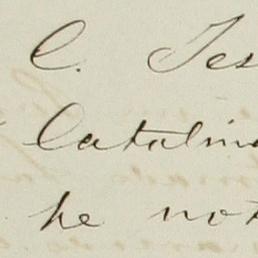 C. Tes
Catalina
he not